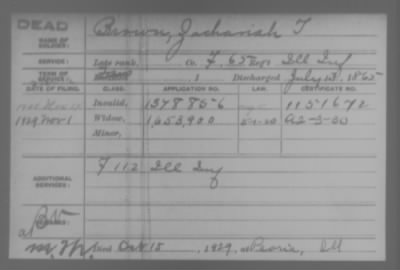 DEAD
NAME OF SOLDIER: Brown, Zachariah T
SERVICE: Late rank, Co. F, 65 Reg't Ill Inf
TERM OF SERVICE: Enlisted 1 Discharged July 13, 1865
DATE OF FILING. CLASS. APPLICATION NO. LAW. CERTIFICATE NO.
Invalid, 1378856 1151672
1929 Nov 1 Widow, 1,653,900 A2-5-30
Minor,
ADDITIONAL SERVICES: F 112 Ill Inf
REMARKS:
Died Oct 15, 1929, at Peoria, Ill